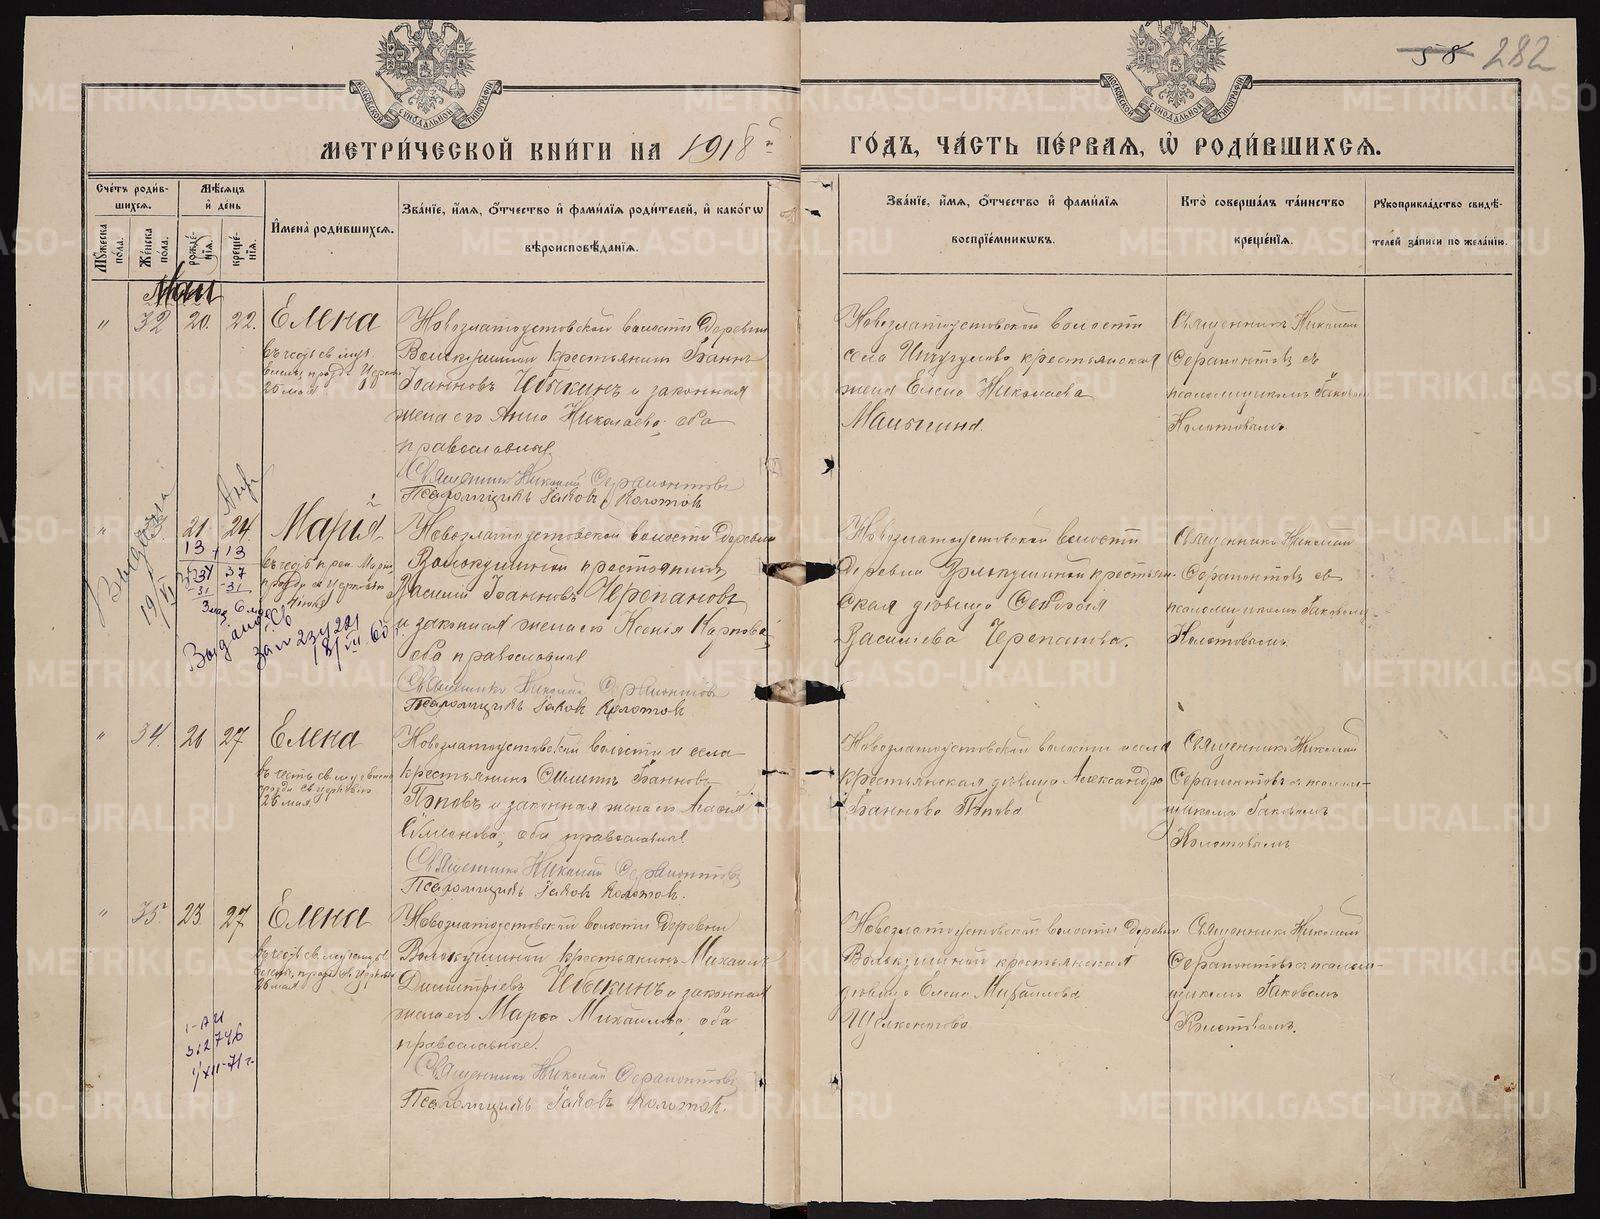 58 282
МОСКОВСКОЙ СѴНОДАЛЬНОЙ ТИПОГРАФІИ
МОСКОВСКОЙ СѴНОДАЛЬНОЙ ТИПОГРАФІИ
МЕТРИ́ЧЕСКОЙ КНИ́ГИ НА 1918 й
ГО́ДЪ, ЧА́СТЬ ПЕ́РВАЯ, Ѡ҆ РОДИ́ВШИХСЯ.
Сче́тъ роди́в-
шихся.
Мꙋ́жеска по́ла.
Же́нска по́ла.
Мѣ́сяцъ
и҆ де́нь
рожде́-
нїя.
креще́-
нїя.
И҆мена̀ роди́вшихся.
Зва́нїе, и҆́мя, ѻ҆́тчество и҆ фами́лїя роди́телей, и҆ како́гѡ
вѣроисповѣ́данїя.
Зва́нїе, и҆́мя, ѻ҆́тчество и҆ фами́лїя
воспрїе́мникѡвъ.
Кто̀ соверша́лъ та́инство
креще́нїя.
Рꙋкоприкла́дство свидѣ́-
телей за́писи по жела́нїю.
Май
" 32 20. 22. Елена
въ честь св. муц.
Елены, празд. Церк.
26 мая
Новозлатоустовской волости деревни
Волокушиной крестьянинъ Іоаннъ
Іоанновъ Чебыкинъ и законная
жена его Анна Николаева, оба
православные
Священникъ Николай Серапионтовъ
Псаломщикъ Іаковъ Колотовъ
Новозлатоустовской волости
села Ичугулово крестьянская
жена Елена Николаева
Малыгина.
Священникъ Николай
Серапионтовъ съ
псаломщикомъ Іаковомъ
Колотовымъ.
" 21. 24. Марія
Выдана
19/VI
13 + 13
34 37
-31 -31
Выдано
18/VII 65
Новозлатоустовской волости деревни
Волокушиной крестьянинъ
Василій Іоанновъ Черепановъ
и законная жена его Ксенія Карпова,
оба православные
Священникъ Николай Серапионтовъ
Псаломщикъ Іаковъ Колотовъ
Новозлатоустовской волости
деревни Волокушиной крестьян-
ская дѣвица
Василіева Черепанова.
Священникъ Николай
Серапионтовъ съ
псаломщикомъ Іаковомъ
Колотовымъ.
" 34. 26 27 Елена
въ честь св.
празд. св. церковью
26 мая
Новозлатоустовской волости и села
крестьянинъ Іоанновъ
Поповъ и законная жена его
Симеонова, оба православные
Священникъ Николай Серапионтовъ
Псаломщикъ Іаковъ Колотовъ.
Новозлатоустовской волости и села
крестьянская дѣвица Александра
Іоаннова Попова
Священникъ Николай
Серапионтовъ съ псалом-
щикомъ Іаковомъ
Колотовымъ
" 35. 23 27. Елена
въ честь св. мученицы
Елены, празд. св. Церковью
26 мая
1-АИ
312746
Новозлатоустовской волости деревни
Волокушиной крестьянинъ Михаилъ
Димитріевъ Чебыкинъ и законная
жена его Марѳа Михаилова, оба
православные.
Священникъ Николай Серапионтовъ
Псаломщикъ Іаковъ Колотовъ.
Новозлатоустовской волости деревни
Волокушиной крестьянская
дѣвица Елена Михаилова
Священникъ Николай
Серапионтовъ съ псалом-
щикомъ Іаковомъ
Колотовымъ.
METRIKI.GASO-URAL.RU